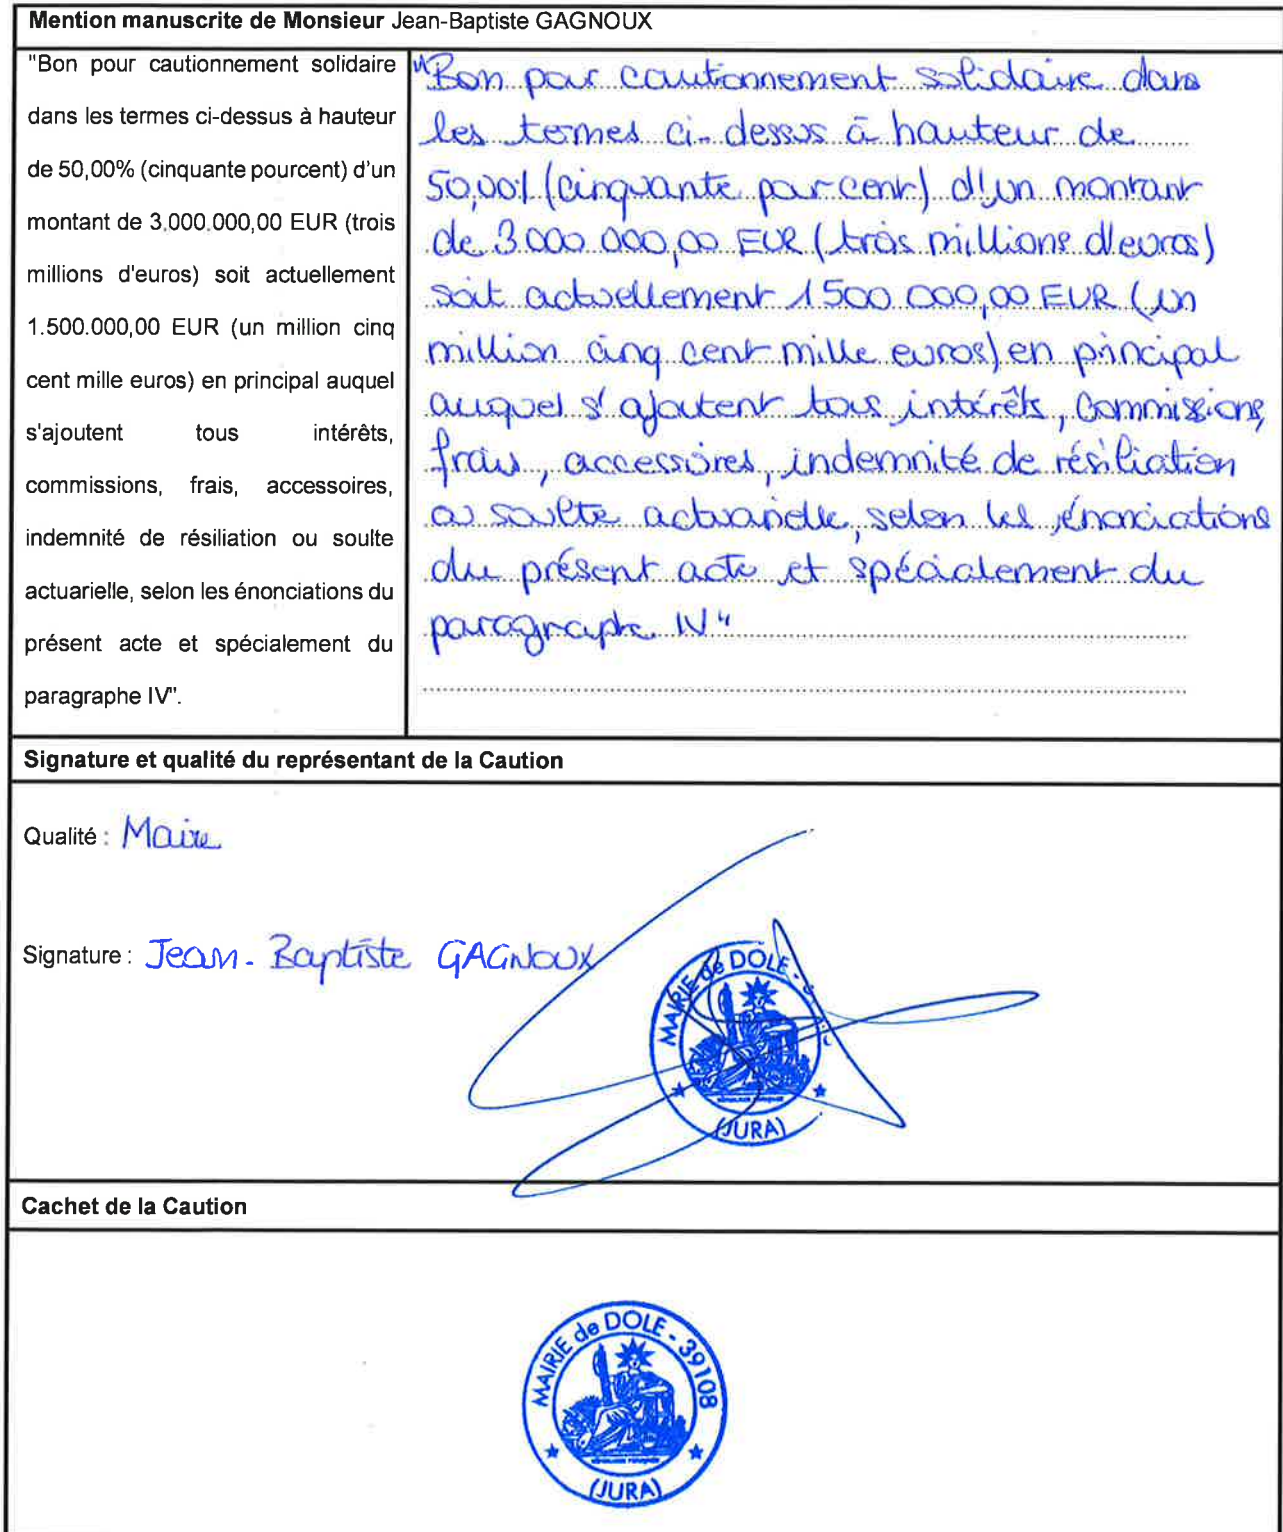 Mention manuscrite de Monsieur Jean-Baptiste GAGNOUX
"Bon pour cautionnement solidaire
dans les termes ci-dessus à hauteur
de 50,00% (cinquante pourcent) d'un
montant de 3.000.000,00 EUR (trois
millions d'euros) soit actuellement
1.500.000,00 EUR (un million cinq
cent mille euros) en principal auquel
s'ajoutent tous intérêts,
commissions, frais, accessoires,
indemnité de résiliation ou soulte
actuarielle, selon les énonciations du
présent acte et spécialement du
paragraphe IV".
"Bon pour cautionnement solidaire dans
les termes ci-dessus à hauteur de
50,00% (cinquante pour cent) d'un montant
de 3 000 000,00 EUR (trois millions d'euros)
soit actuellement 1 500 000,00 EUR (un
million cinq cent mille euros) en principal
auquel s'ajoutent tous intérêts, commissions,
frais, accessoires, indemnité de résiliation
ou soulte actuarielle, selon les énonciations
du présent acte et spécialement du
paragraphe IV"
Signature et qualité du représentant de la Caution
Qualité : Maire
Signature : Jean-Baptiste GAGNOUX
MAIRIE de DOLE
(JURA)
Cachet de la Caution
MAIRIE de DOLE - 39108
RÉPUBLIQUE FRANÇAISE
(JURA)